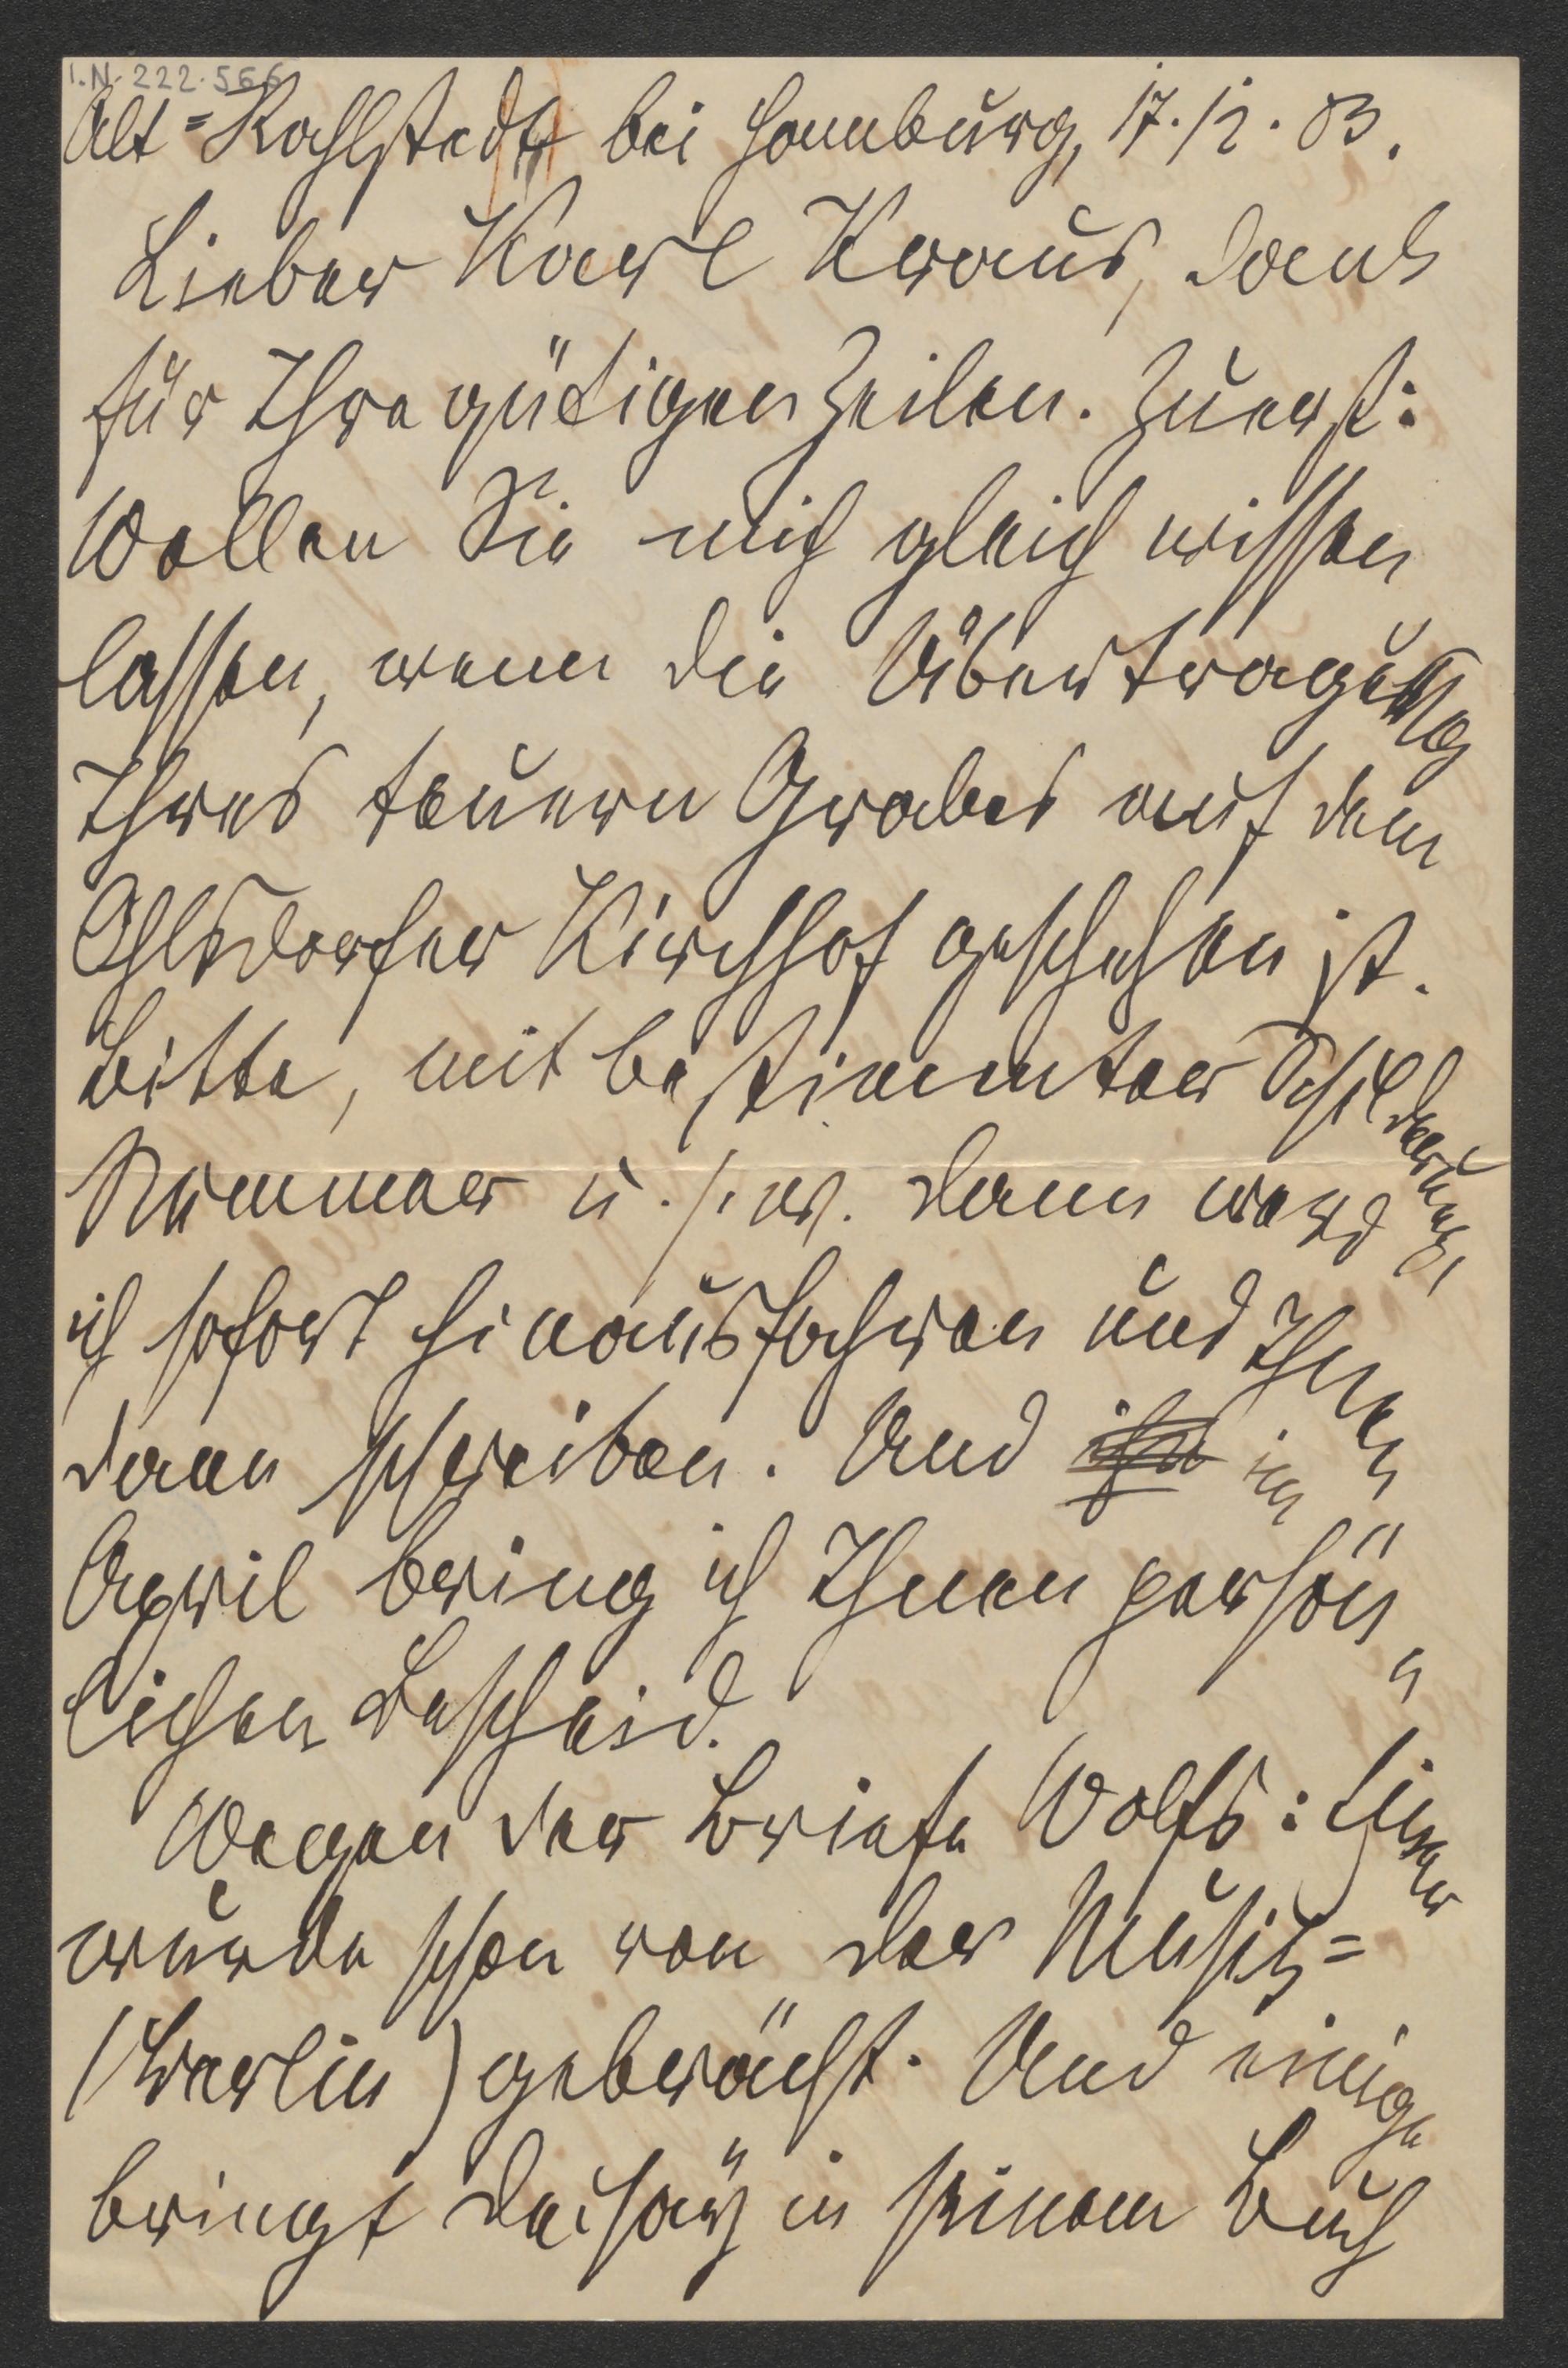 I.N. 222.566
Alt=Rahlstedt bei Hamburg, 17.12.03.
Lieber Karl Kraus, Dank
für Ihre gütigen Zeilen. Zuerst:
Wollen Sie mich gleich wissen
lassen, wenn die Übertragung
Ihres teuern Grabes auf dem
Ohlsdorfer Kirchhof geschehen ist.
Bitte, mit bestimmter Schilderung,
Nummer u.s.w. Dann werd
ich sofort hinausfahren und Ihnen
dann schreiben. Und in
April bring ich Ihnen persön„
lichen Bescheid.
Wegen der Briefe Wolfs:
wurde schon von der Musik=
(Berlin) gebracht. Und einige
bringt Decsey in seinem Buch